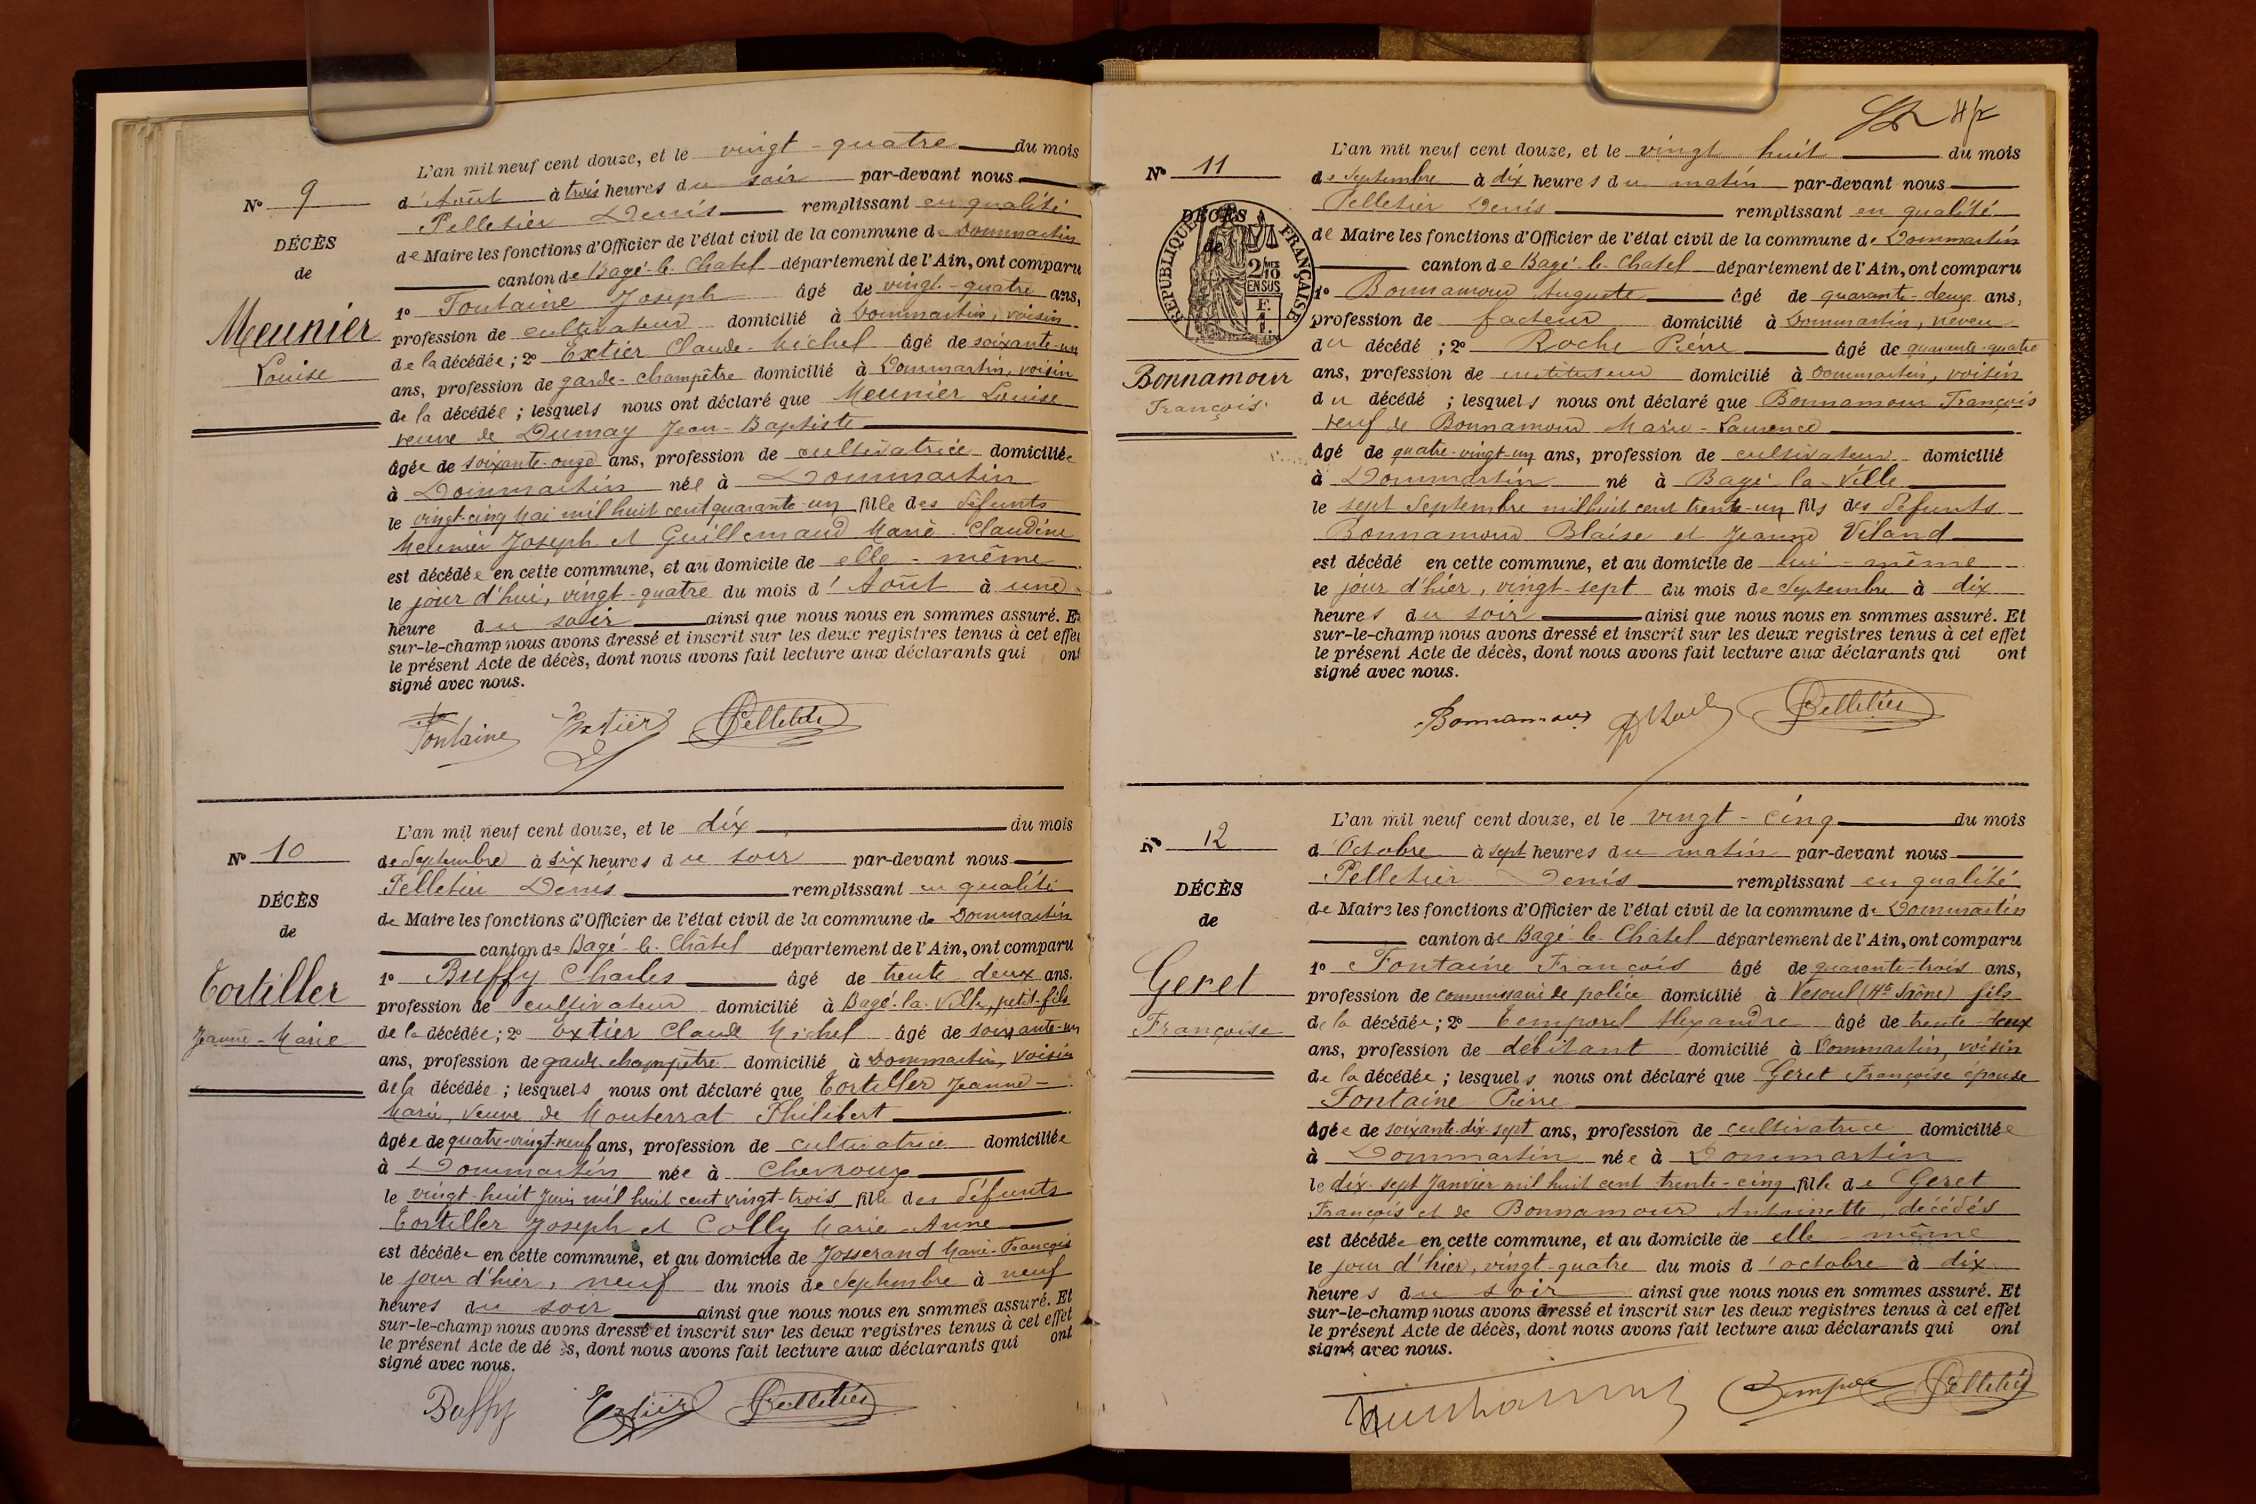 N° 9
DÉCÈS
de
Meunier
Louise
L'an mil neuf cent douze, et le vingt-quatre du mois
d'Août à trois heures du soir par-devant nous
Pelletier Denis remplissant en qualité
de Maire les fonctions d'Officier de l'état civil de la commune de Dommartin
canton de Bagé-le-Chatel département de l'Ain, ont comparu
1° Fontaine Joseph âgé de vingt-quatre ans,
profession de cultivateur domicilié à Dommartin, voisin
de la décédée; 2° Extier Claude-Michel âgé de soixante-un
ans, profession de garde-champêtre domicilié à Dommartin, voisin
de la décédée; lesquels nous ont déclaré que Meunier Louise
veuve de Dumay Jean-Baptiste
âgée de soixante-onze ans, profession de cultivatrice domiciliée
à Dommartin née à Dommartin
le vingt-cinq Mai mil huit cent quarante-un fille des défunts
Meunier Joseph et Guillemaud Marie-Claudine
est décédée en cette commune, et au domicile de elle-même
le jour d'hui, vingt-quatre du mois d'Août à une
heure du soir ainsi que nous nous en sommes assuré. Et
sur-le-champ nous avons dressé et inscrit sur les deux registres tenus à cet effet
le présent Acte de décès, dont nous avons fait lecture aux déclarants qui ont
signé avec nous.
Fontaine Extier Pelletier
N° 10
DÉCÈS
de
Tortiller
Jeanne-Marie
L'an mil neuf cent douze, et le dix du mois
de Septembre à six heures du soir par-devant nous
Pelletier Denis remplissant en qualité
de Maire les fonctions d'Officier de l'état civil de la commune de Dommartin
canton de Bagé-le-Châtel département de l'Ain, ont comparu
1° Buffy Charles âgé de trente deux ans,
profession de cultivateur domicilié à Bagé-la-Ville, petit-fils
de la décédée; 2° Extier Claude Michel âgé de soixante-un
ans, profession de garde champêtre domicilié à Dommartin, voisin
de la décédée; lesquels nous ont déclaré que Tortiller Jeanne-
Marie, veuve de Monterrat Philibert
âgée de quatre-vingt-neuf ans, profession de cultivatrice domiciliée
à Dommartin née à Chevroux
le vingt-huit Juin mil huit cent vingt-trois fille des défunts
Tortiller Joseph et Colly Marie-Anne
est décédée en cette commune, et au domicile de Josserand Marie-François
le jour d'hier, neuf du mois de Septembre à neuf
heures du soir ainsi que nous nous en sommes assuré. Et
sur-le-champ nous avons dressé et inscrit sur les deux registres tenus à cet effet
le présent Acte de dé s, dont nous avons fait lecture aux déclarants qui ont
signé avec nous.
Buffy Extier Pelletier
N° 11
DÉCÈS
de
RÉPUBLIQUE FRANÇAISE
2/10
EN SUS
Bonnamour
François
L'an mil neuf cent douze, et le vingt huit du mois
de Septembre à dix heures du matin par-devant nous
Pelletier Denis remplissant en qualité
de Maire les fonctions d'Officier de l'état civil de la commune de Dommartin
canton de Bagé-le-Chatel département de l'Ain, ont comparu
1° Bonnamour Auguste âgé de quarante-deux ans,
profession de facteur domicilié à Dommartin, neveu
du décédé; 2° Roche Pierre âgé de quarante-quatre
ans, profession de instituteur domicilié à Dommartin, voisin
du décédé; lesquels nous ont déclaré que Bonnamour François
veuf de Bonnamour Marie-Laurence
âgé de quatre-vingt-un ans, profession de cultivateur domicilié
à Dommartin né à Bagé-la-Ville
le sept Septembre mil huit cent trente-un fils des défunts
Bonnamour Blaise et Jeanne Viland
est décédé en cette commune, et au domicile de lui-même
le jour d'hier, vingt-sept du mois de Septembre à dix
heures du soir ainsi que nous nous en sommes assuré. Et
sur-le-champ nous avons dressé et inscrit sur les deux registres tenus à cet effet
le présent Acte de décès, dont nous avons fait lecture aux déclarants qui ont
signé avec nous.
Bonnamour Pelletier
N° 12
DÉCÈS
de
Geret
Françoise
L'an mil neuf cent douze, et le vingt-cinq du mois
d'Octobre à sept heures du matin par-devant nous
Pelletier Denis remplissant en qualité
de Maire les fonctions d'Officier de l'état civil de la commune de Dommartin
canton de Bagé-le-Châtel département de l'Ain, ont comparu
1° Fontaine François âgé de quarante-trois ans,
profession de commissaire de police domicilié à Vesoul (Hte Saône) fils
de la décédée; 2° Temporel Alexandre âgé de trente-deux
ans, profession de débitant domicilié à Dommartin, voisin
de la décédée; lesquels nous ont déclaré que Geret Françoise épouse
Fontaine Pierre
âgée de soixante-dix-sept ans, profession de cultivatrice domiciliée
à Dommartin née à Dommartin
le dix-sept Janvier mil huit cent trente-cinq fille de Geret
François et de Bonnamour Antoinette, décédés
est décédée en cette commune, et au domicile de elle-même
le jour d'hier, vingt-quatre du mois d'octobre à dix
heures du soir ainsi que nous nous en sommes assuré. Et
sur-le-champ nous avons dressé et inscrit sur les deux registres tenus à cet effet
le présent Acte de décès, dont nous avons fait lecture aux déclarants qui ont
signé avec nous.
Pelletier